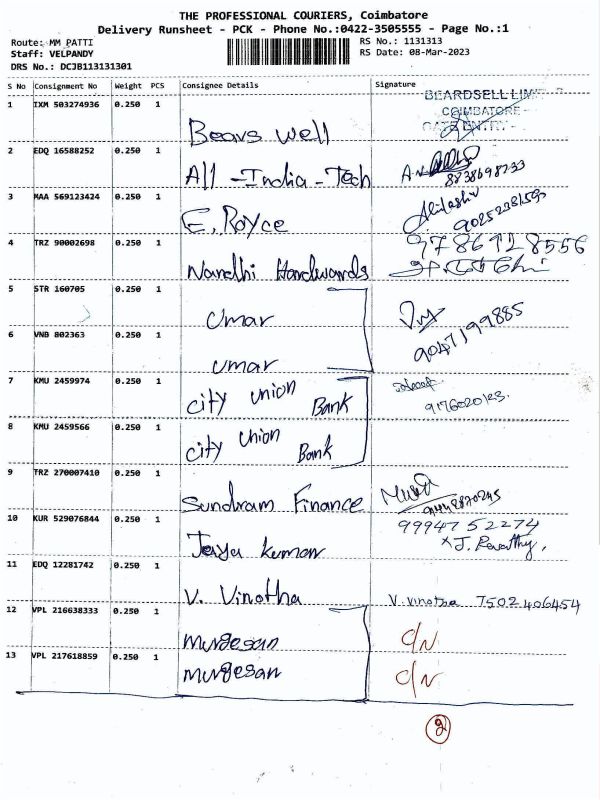 THE PROFESSIONAL COURIERS, Coimbatore
Delivery Runsheet - PCK - Phone No.:0422-3505555 - Page No.:1
Route: MM PATTI
Staff: VELPANDY
DRS No.: DCJB113131301
RS No.: 1131313
RS Date: 08-Mar-2023
S No Consignment No Weight PCS Consignee Details Signature
BEARDSELL LIM
COIMBATORE
GATE ENTRY
1 IXM 503274936 0.250 1 Bears well
2 EDQ 16588252 0.250 1 All - India - Tech 8838698233
3 MAA 569123424 0.250 1 E. Royce
4 TRZ 90002698 0.250 1 Nandhi Hardwards 9786128556
5 STR 160705 0.250 1 Umar
6 VNB 802363 0.250 1 Umar 9047199885
7 KMU 2459974 0.250 1 City Union Bank
8 KMU 2459566 0.250 1 City Union Bank
9 TRZ 270007410 0.250 1 Sundram Finance
10 KUR 529076844 0.250 1 Jaya kumar 99947 52274
11 EDQ 12281742 0.250 1 V. Vinotha V. vinotha 7502406454
12 VPL 216638333 0.250 1 murgesan C/N
13 VPL 217618859 0.250 1 murgesan C/N
2